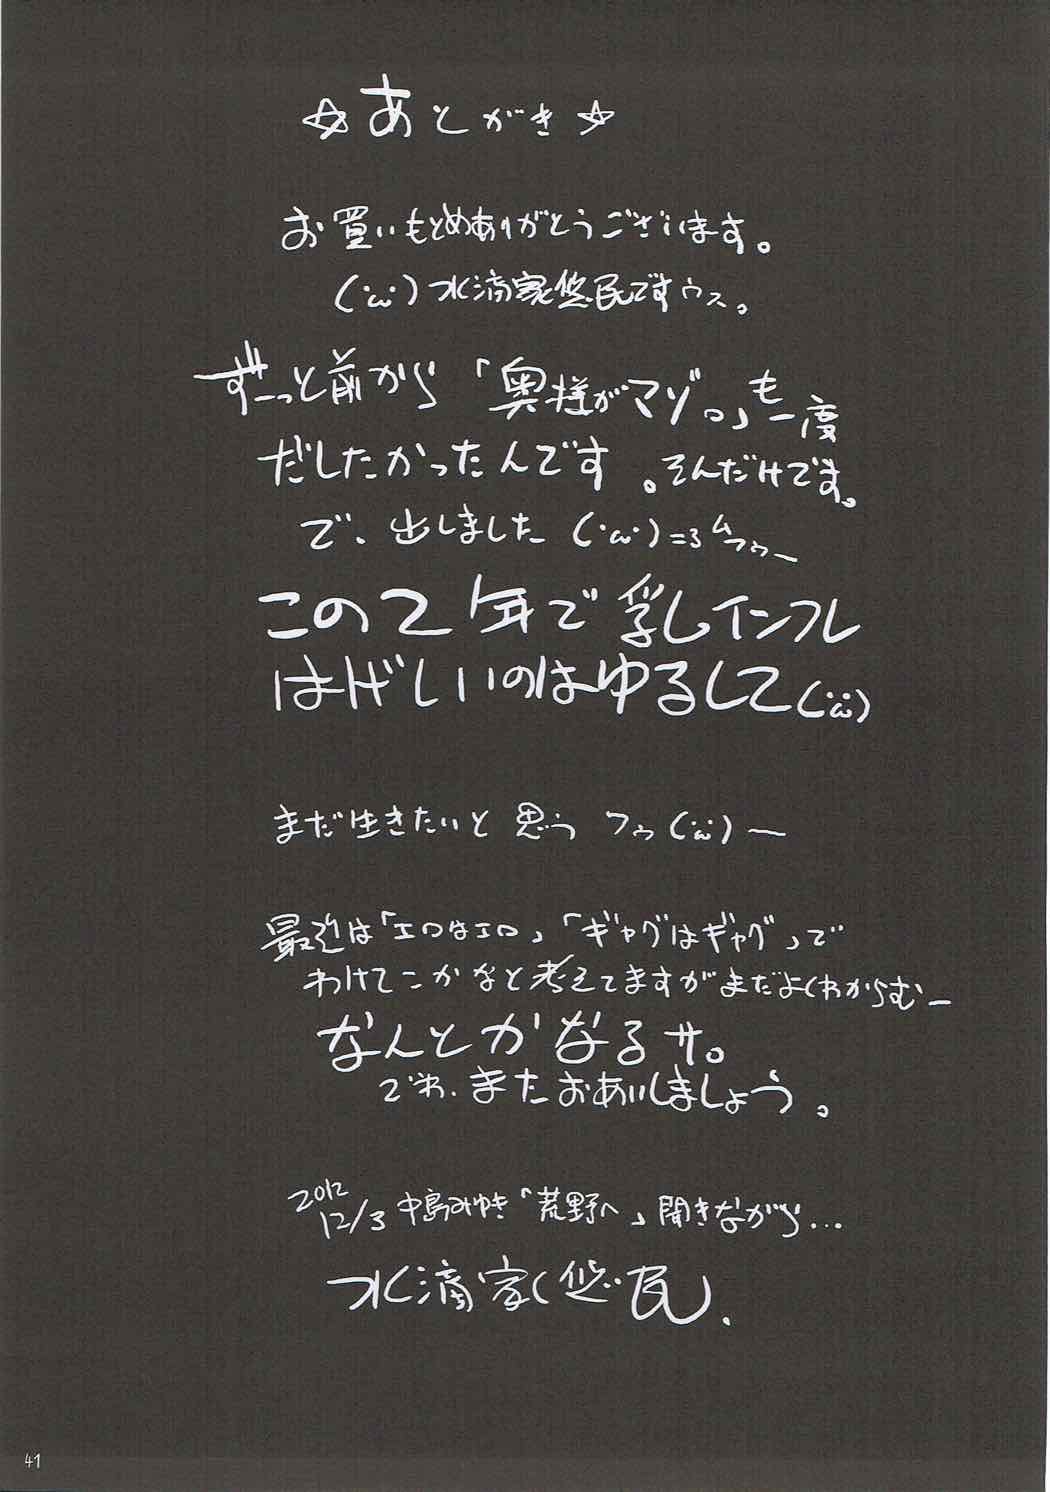 ☆あとがき☆
お買いもとめありがとうございます。
(･ω･)水滴家悠民ですウス。
ずーっと前から「奥様がマゾ。」も一度
だしたかったんです。そんだけです。
で、出しました(･ω･)=3ムフゥー
この2年で乳インフレ
はげしいのはゆるして(･ω･)
まだ生きたいと思う フゥ(･ω･)ー
最近は「エロはエロ」「ギャグはギャグ」で
わけてこかなと考えてますがまだよくわからむー
なんとかなるサ。
でわ、またおあいしましょう。
2012
12/3 中島みゆき「荒野へ」聞きながら...
水滴家悠民.
41